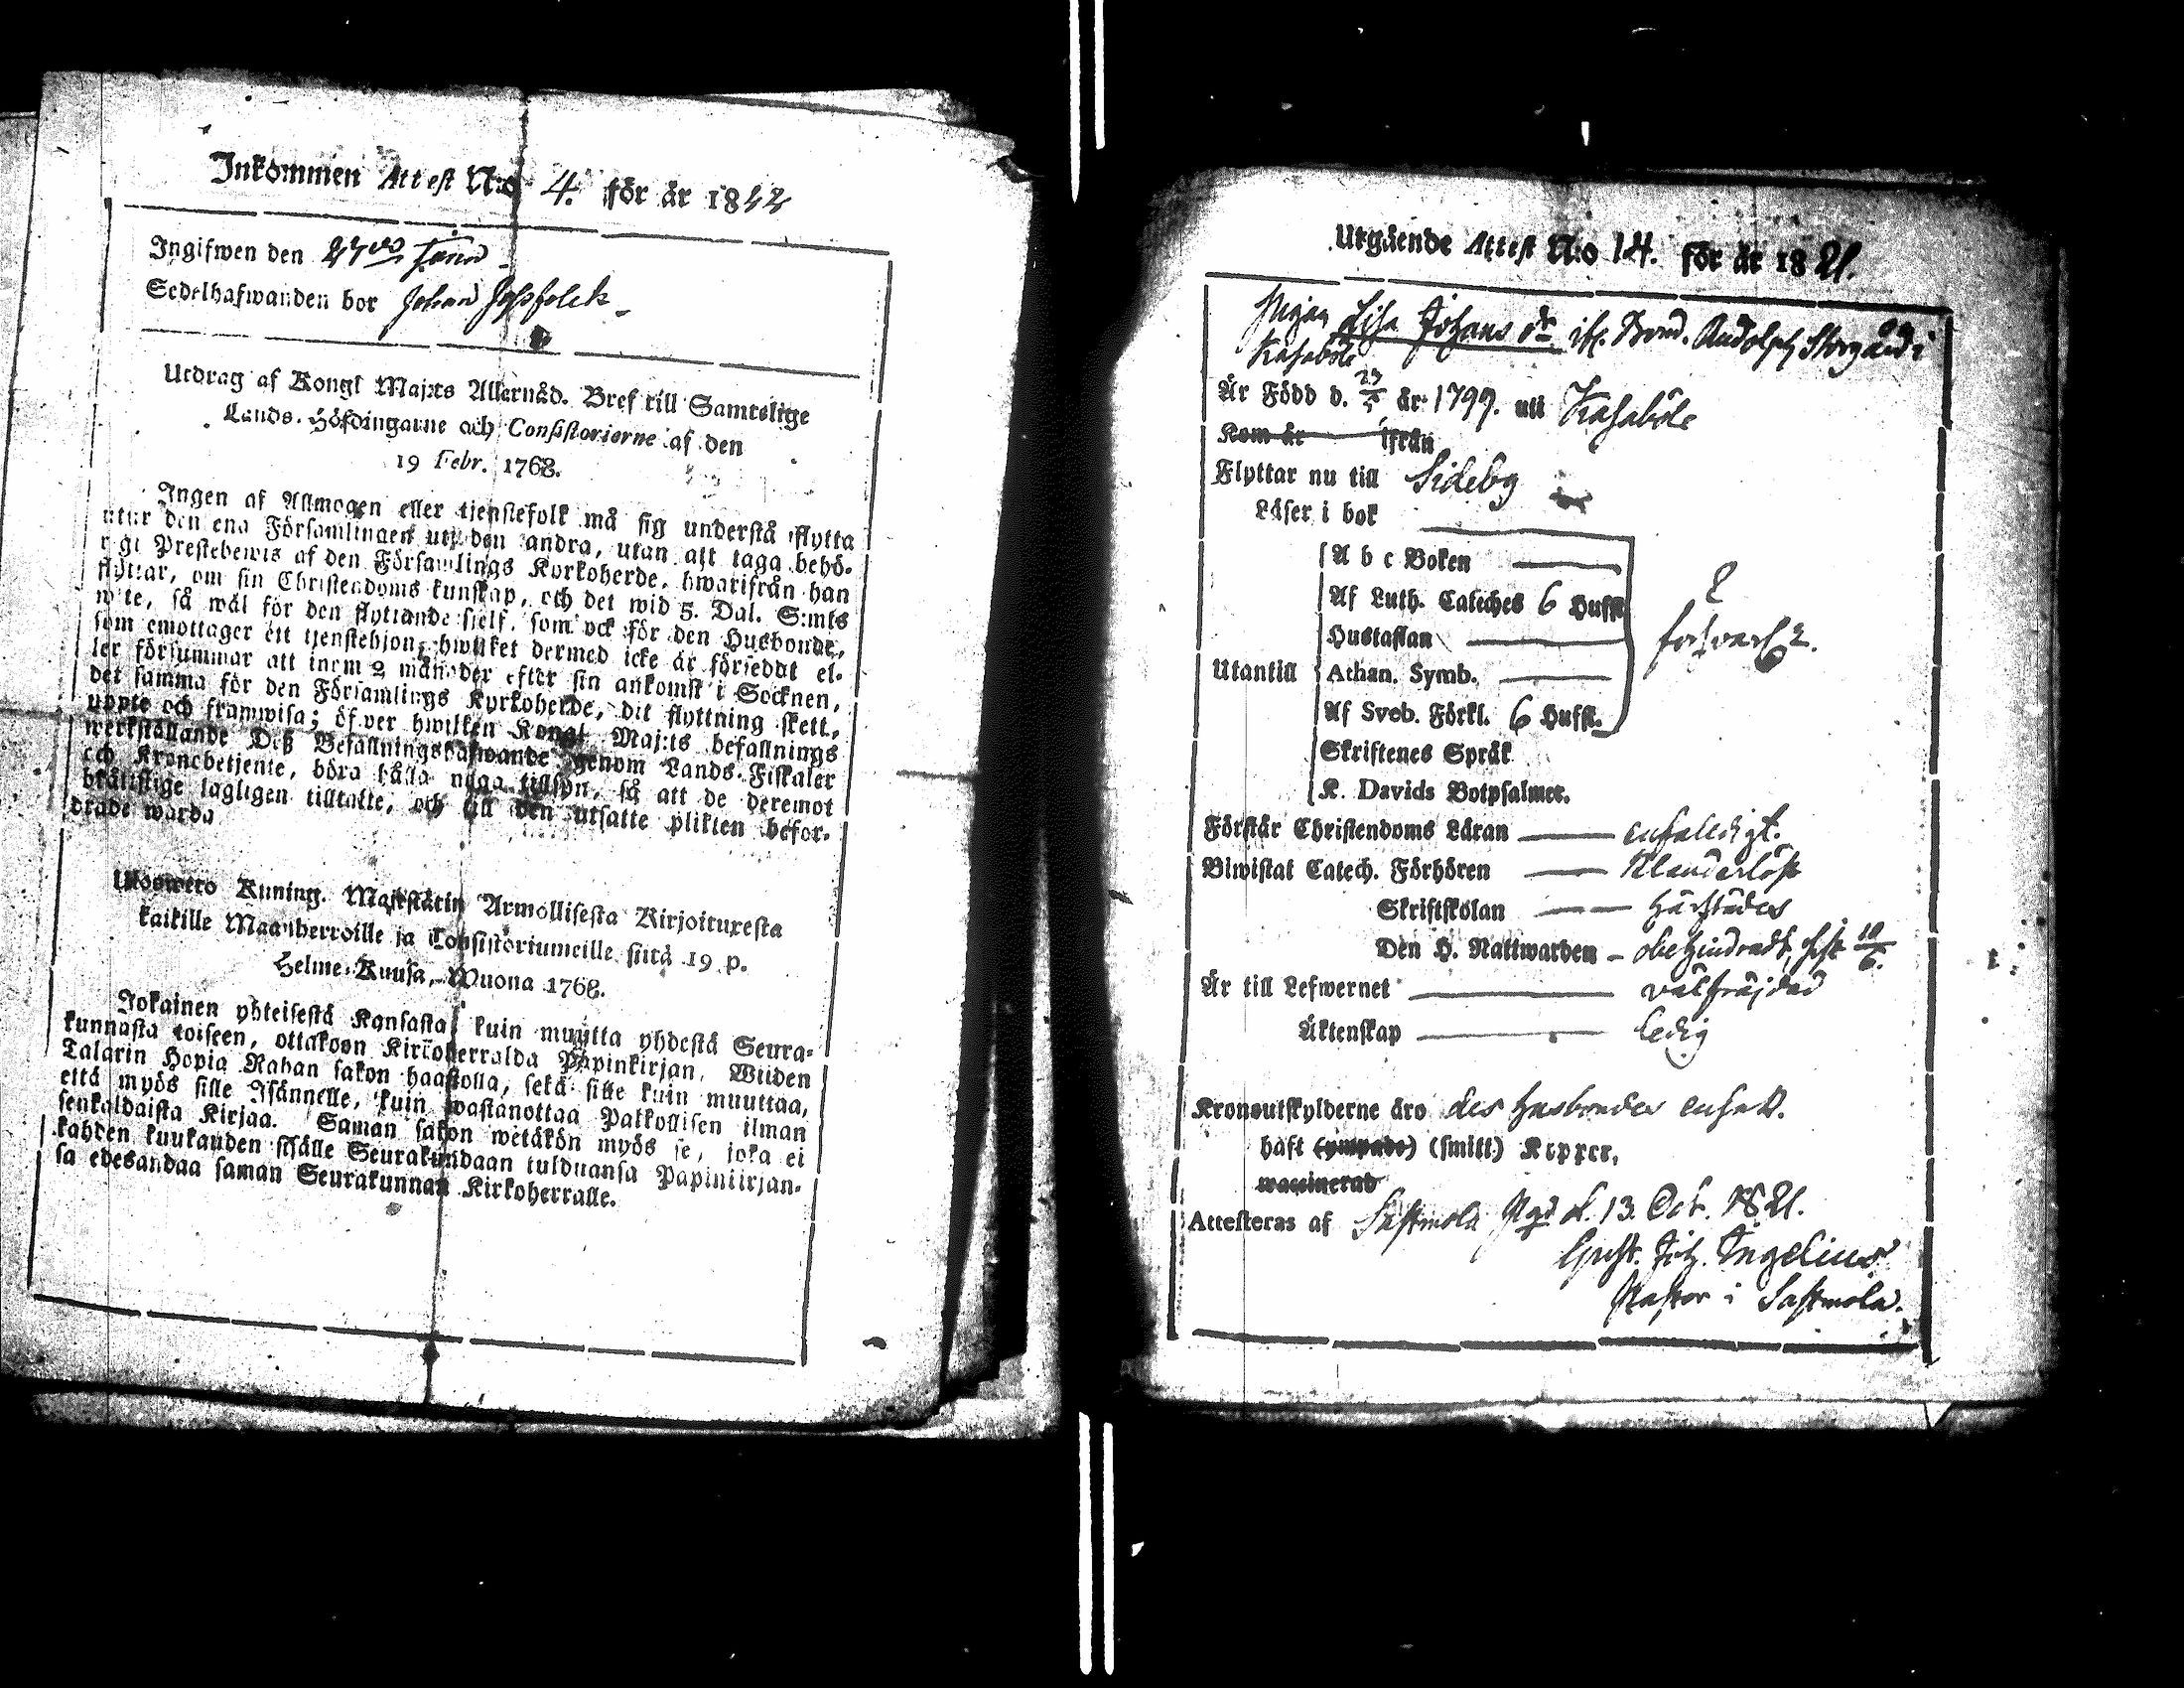 Inkommen Attest N:o 4. för år 1822
Ingifwen den
Sedelhafwanden bor Johan
Utdrag af Kongl Maj:ts Allernåd. Bref till Samtelige
Lands-Höfdingarne och Consistorierne af den
19 Febr. 1768.
Ingen af Allmogen eller tjenstefolk må sig understå flytta
utur den ena Församlingen uti den andra, utan att taga behö-
rigt Prestebewis af den Församlings Kyrkoherde, hwarifrån han
flyttar, om sin Christendoms kunskap, och det wid 5. Dal. S:mts
wite, så wäl för den flyttande sjelf, som ock för den Husbonde,
som emottager ett tjenstehjon, hwilket dermed icke är försedat el-
ler försummar att inom 2 månader efter sin ankomst i Socknen,
det samma för den Församlings Kyrkoherde, dit flyttning skett,
uppte och framwisa; öfver hwilken Kongl Maj:ts befallnings
werkställande Deß Befallningshafwande genom Lands-Fiskaler
och Kronobetjente, böra hålla noga tillsyn, så att de deremot
bråtlige lagligen tilltalte, och till den utsatte plikten befor-
drade warda
Ulosweto Kuning. Majestätin Armollisesta Kirjoituxesta
kaikille Maanherroille ja Consistoriumeille siitä 19 p.
Helme-Kuusa, Wuona 1768.
Jokainen yhteisestä Kansasta, kuin muutta yhdestä Seura-
kunnasta toiseen, ottakoon Kirkoherralda Papinkirjan, Wiiden
Talarin Hopia Rahan sakon haastolla, sekä sille kuin muuttaa,
että myös sille Isännelle, kuin wastanottaa Palkollisen ilman
senkaldaista Kirjaa. Saman sakon wetäkön myös se, joka ei
kahden kuukauden sisälle Seurakundaan tulduansa Papinkirjan-
sa edesandaa saman Seurakunnan Kirkoherralle.
Utgående Attest N:o 14. för år 1821.
Pigan Lisa Johans dr Bond. Rudolph Storgård i
Kasaböle
Är Född d. år 1799. uti Kasaböle
Kom år ifrån
Flyttar nu till Sideby
Läser i bok
A b c Boken
Af Luth. Cateches 6 Huffst.
Hustaflan
Utantill Athan. Symb.
Af Sveb. Förkl. 6 Huffst.
Skriftenes Språk
K. Davids Botpsalmer.
Förstår Christendoms Läran enfaldigt.
Biwistat Catech. Förhören klanderlöst
Skriftskolan härstädes
Den H. Nattwarden obehindradt, sist 10/6.
Är till Lefwernet välfräjdad
Äktenskap ledig
Kronoutskylderne äro des husbondes ensak.
haft (ympade) (smitt.) Kopper,
waccinerad
Attesteras af Sastmola Pgd d. 13. Oct. 1821.
Gust. Joh. Ingelius
Pastor i Sastmola.